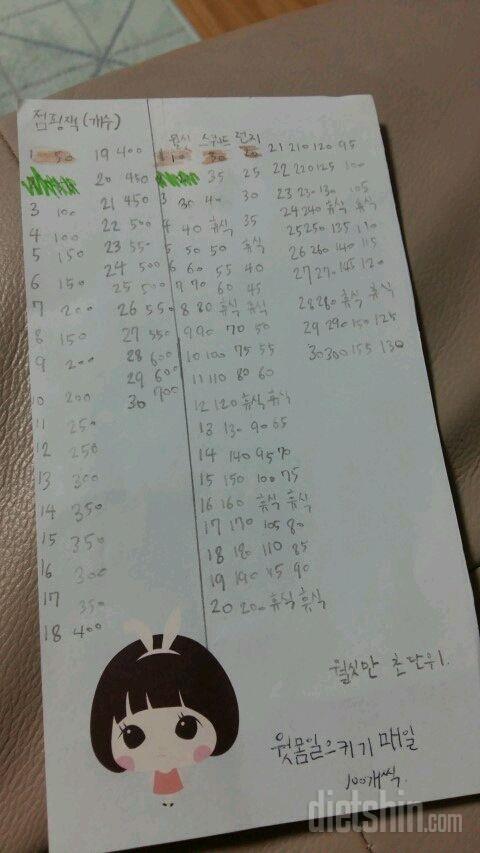 점핑잭 (개수)
1 50
3 100
4 100
5 150
6 150
7 200
8 150
9 200
10 200
11 250
12 250
13 300
14 350
15 350
16 300
17 350
18 400
19 400
20 450
21 450
22 500
23 550
24 500
25 500
26 550
27 550
28 600
29 600
30 700
월싯 스쿼트 런지
1 10 30 20
35 25
3 30 40 30
4 40 휴식 35
5 50 50 휴식
6 60 55 40
7 70 60 45
8 80 휴식 휴식
9 90 70 50
10 100 75 55
11 110 80 60
12 120 휴식 휴식
13 130 90 65
14 140 95 70
15 150 100 75
16 160 휴식 휴식
17 170 105 80
18 180 110 85
19 190 115 90
20 200 휴식 휴식
21 210 120 95
22 220 125 100
23 230 130 105
24 240 휴식 휴식
25 250 135 110
26 260 140 115
27 270 145 120
28 280 휴식 휴식
29 290 150 125
30 300 155 130
월싯만 초단위!
윗몸일으키기 매일
100개씩.
dietshin.com